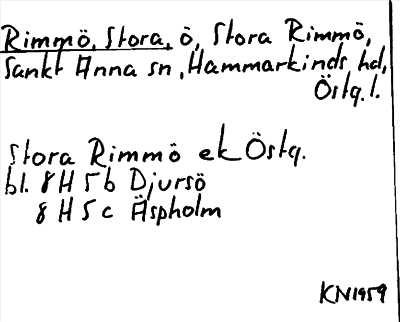 Rimmö, Stora, ö, Stora Rimmö,
Sankt Anna sn, Hammarkinds hd,
Östg. l.
Stora Rimmö ek Östg.
bl. 8H 5b Djursö
8H 5c Äspholm
KN1959